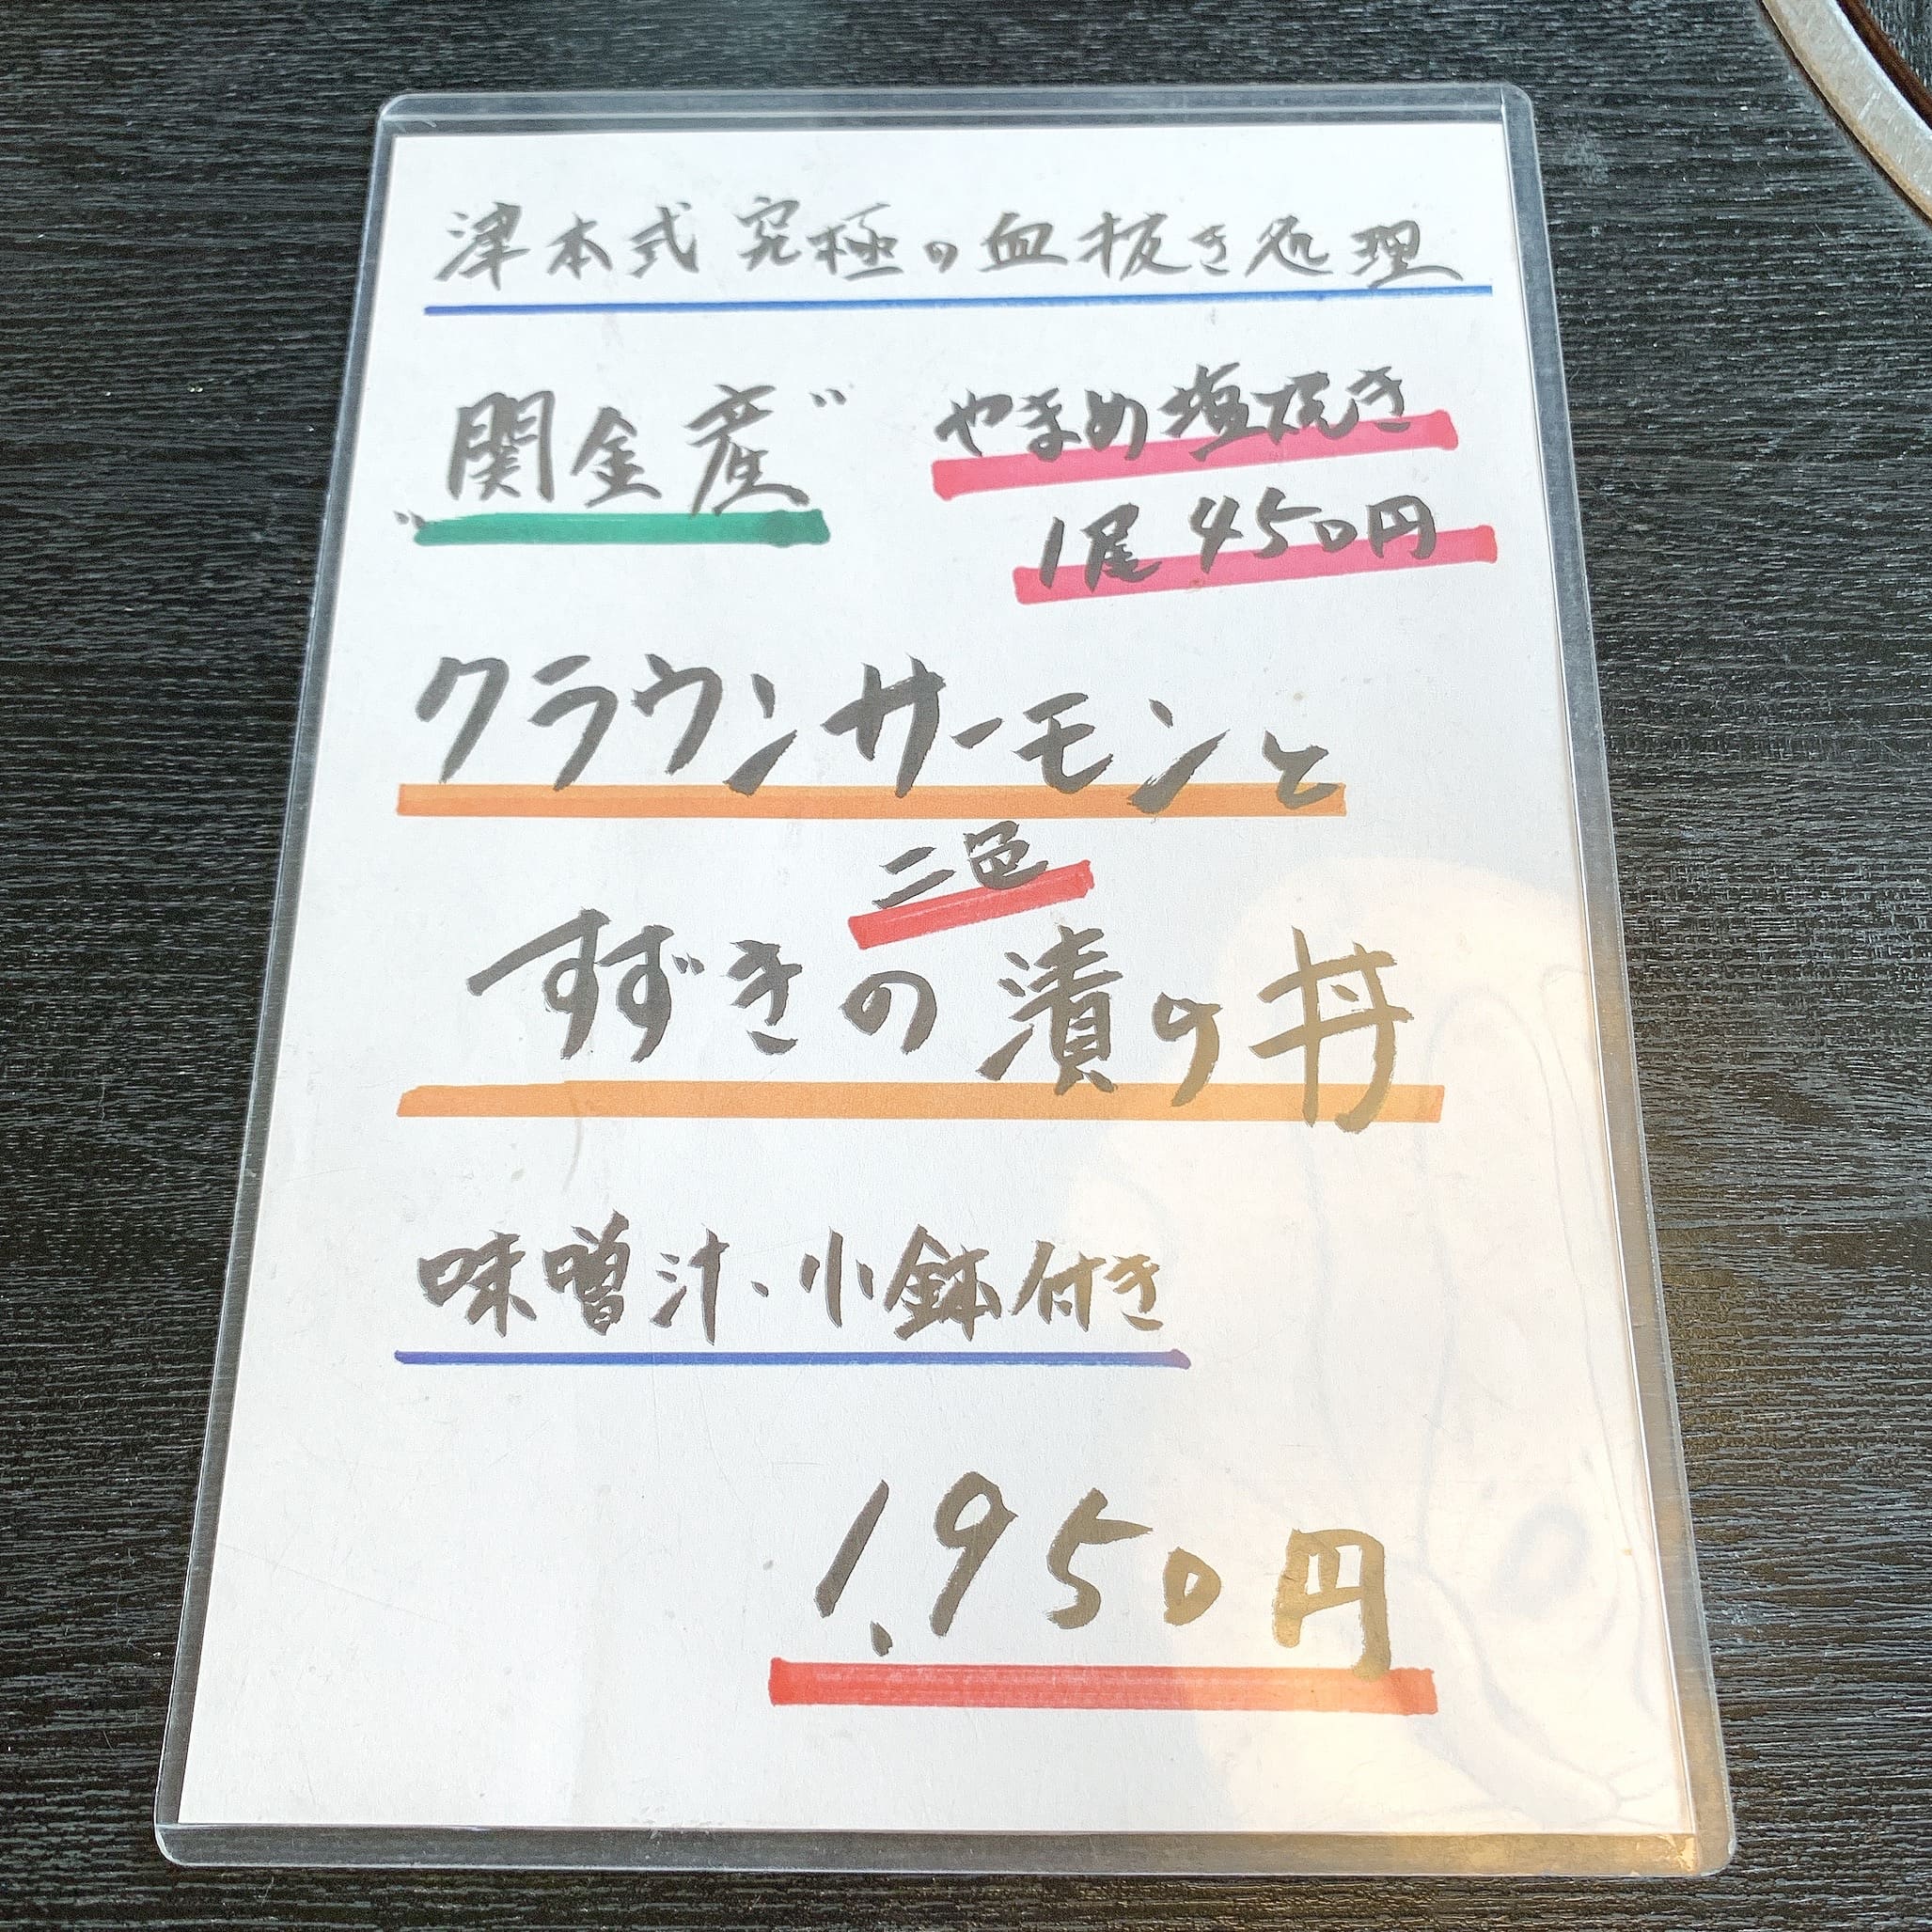 津本式究極の血抜き処理
"関金産"
やまめ塩焼き
1尾450円
クラウンサーモンと
二色
すずきの漬の丼
味噌汁、小鉢付き
1,950円